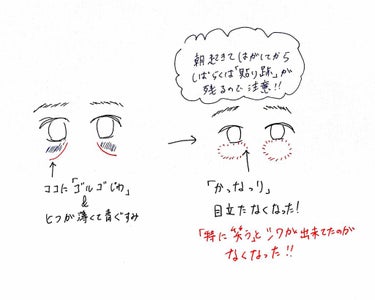 朝起きてはがしてから
しばらくは「貼り跡」が
残るので注意!!
ココに「ゴルゴじわ」
&
ヒフが薄くて青ぐすみ
「かっなっり」
目立たなくなった!
「特に笑う」とシワが出来てたのが
なくなった!!